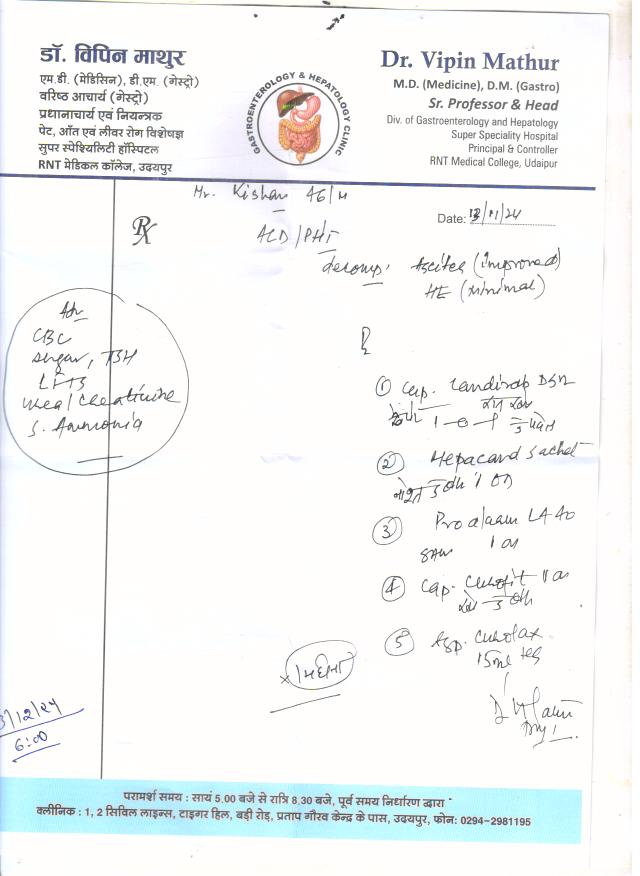 डॉ. विपिन माथुर
एम.डी. (मेडिसिन), डी.एम. (गेस्ट्रो)
वरिष्ठ आचार्य (गेस्ट्रो)
प्रधानाचार्य एवं नियन्त्रक
पेट, आँत एवं लीवर रोग विशेषज्ञ
सुपर स्पेश्यिलिटी हॉस्पिटल
RNT मेडिकल कॉलेज, उदयपुर
GASTROENTEROLOGY & HEPATOLOGY CLINIC
Dr. Vipin Mathur
M.D. (Medicine), D.M. (Gastro)
Sr. Professor & Head
Div. of Gastroenterology and Hepatology
Super Speciality Hospital
Principal & Controller
RNT Medical College, Udaipur
Mr. Kishan 46/M
Date: 13/11/24
Rx
ACD/PHT
decomp: Ascites (Improved)
HE (Minimal)
Adv
CBC
Sugar, TSH
LFTs
Urea/Creatinine
S. Ammonia
① Cap. DSR
1-0-1
② Sachet
1 OD
③ LA 40
④ Cap.
⑤ Syp.
15ml
x 1 महीना
3/12/24
6:00
परामर्श समय : सायं 5.00 बजे से रात्रि 8.30 बजे, पूर्व समय निर्धारण द्वारा
क्लीनिक : 1, 2 सिविल लाइन्स, टाइगर हिल, बड़ी रोड़, प्रताप गौरव केन्द्र के पास, उदयपुर, फोन: 0294-2981195